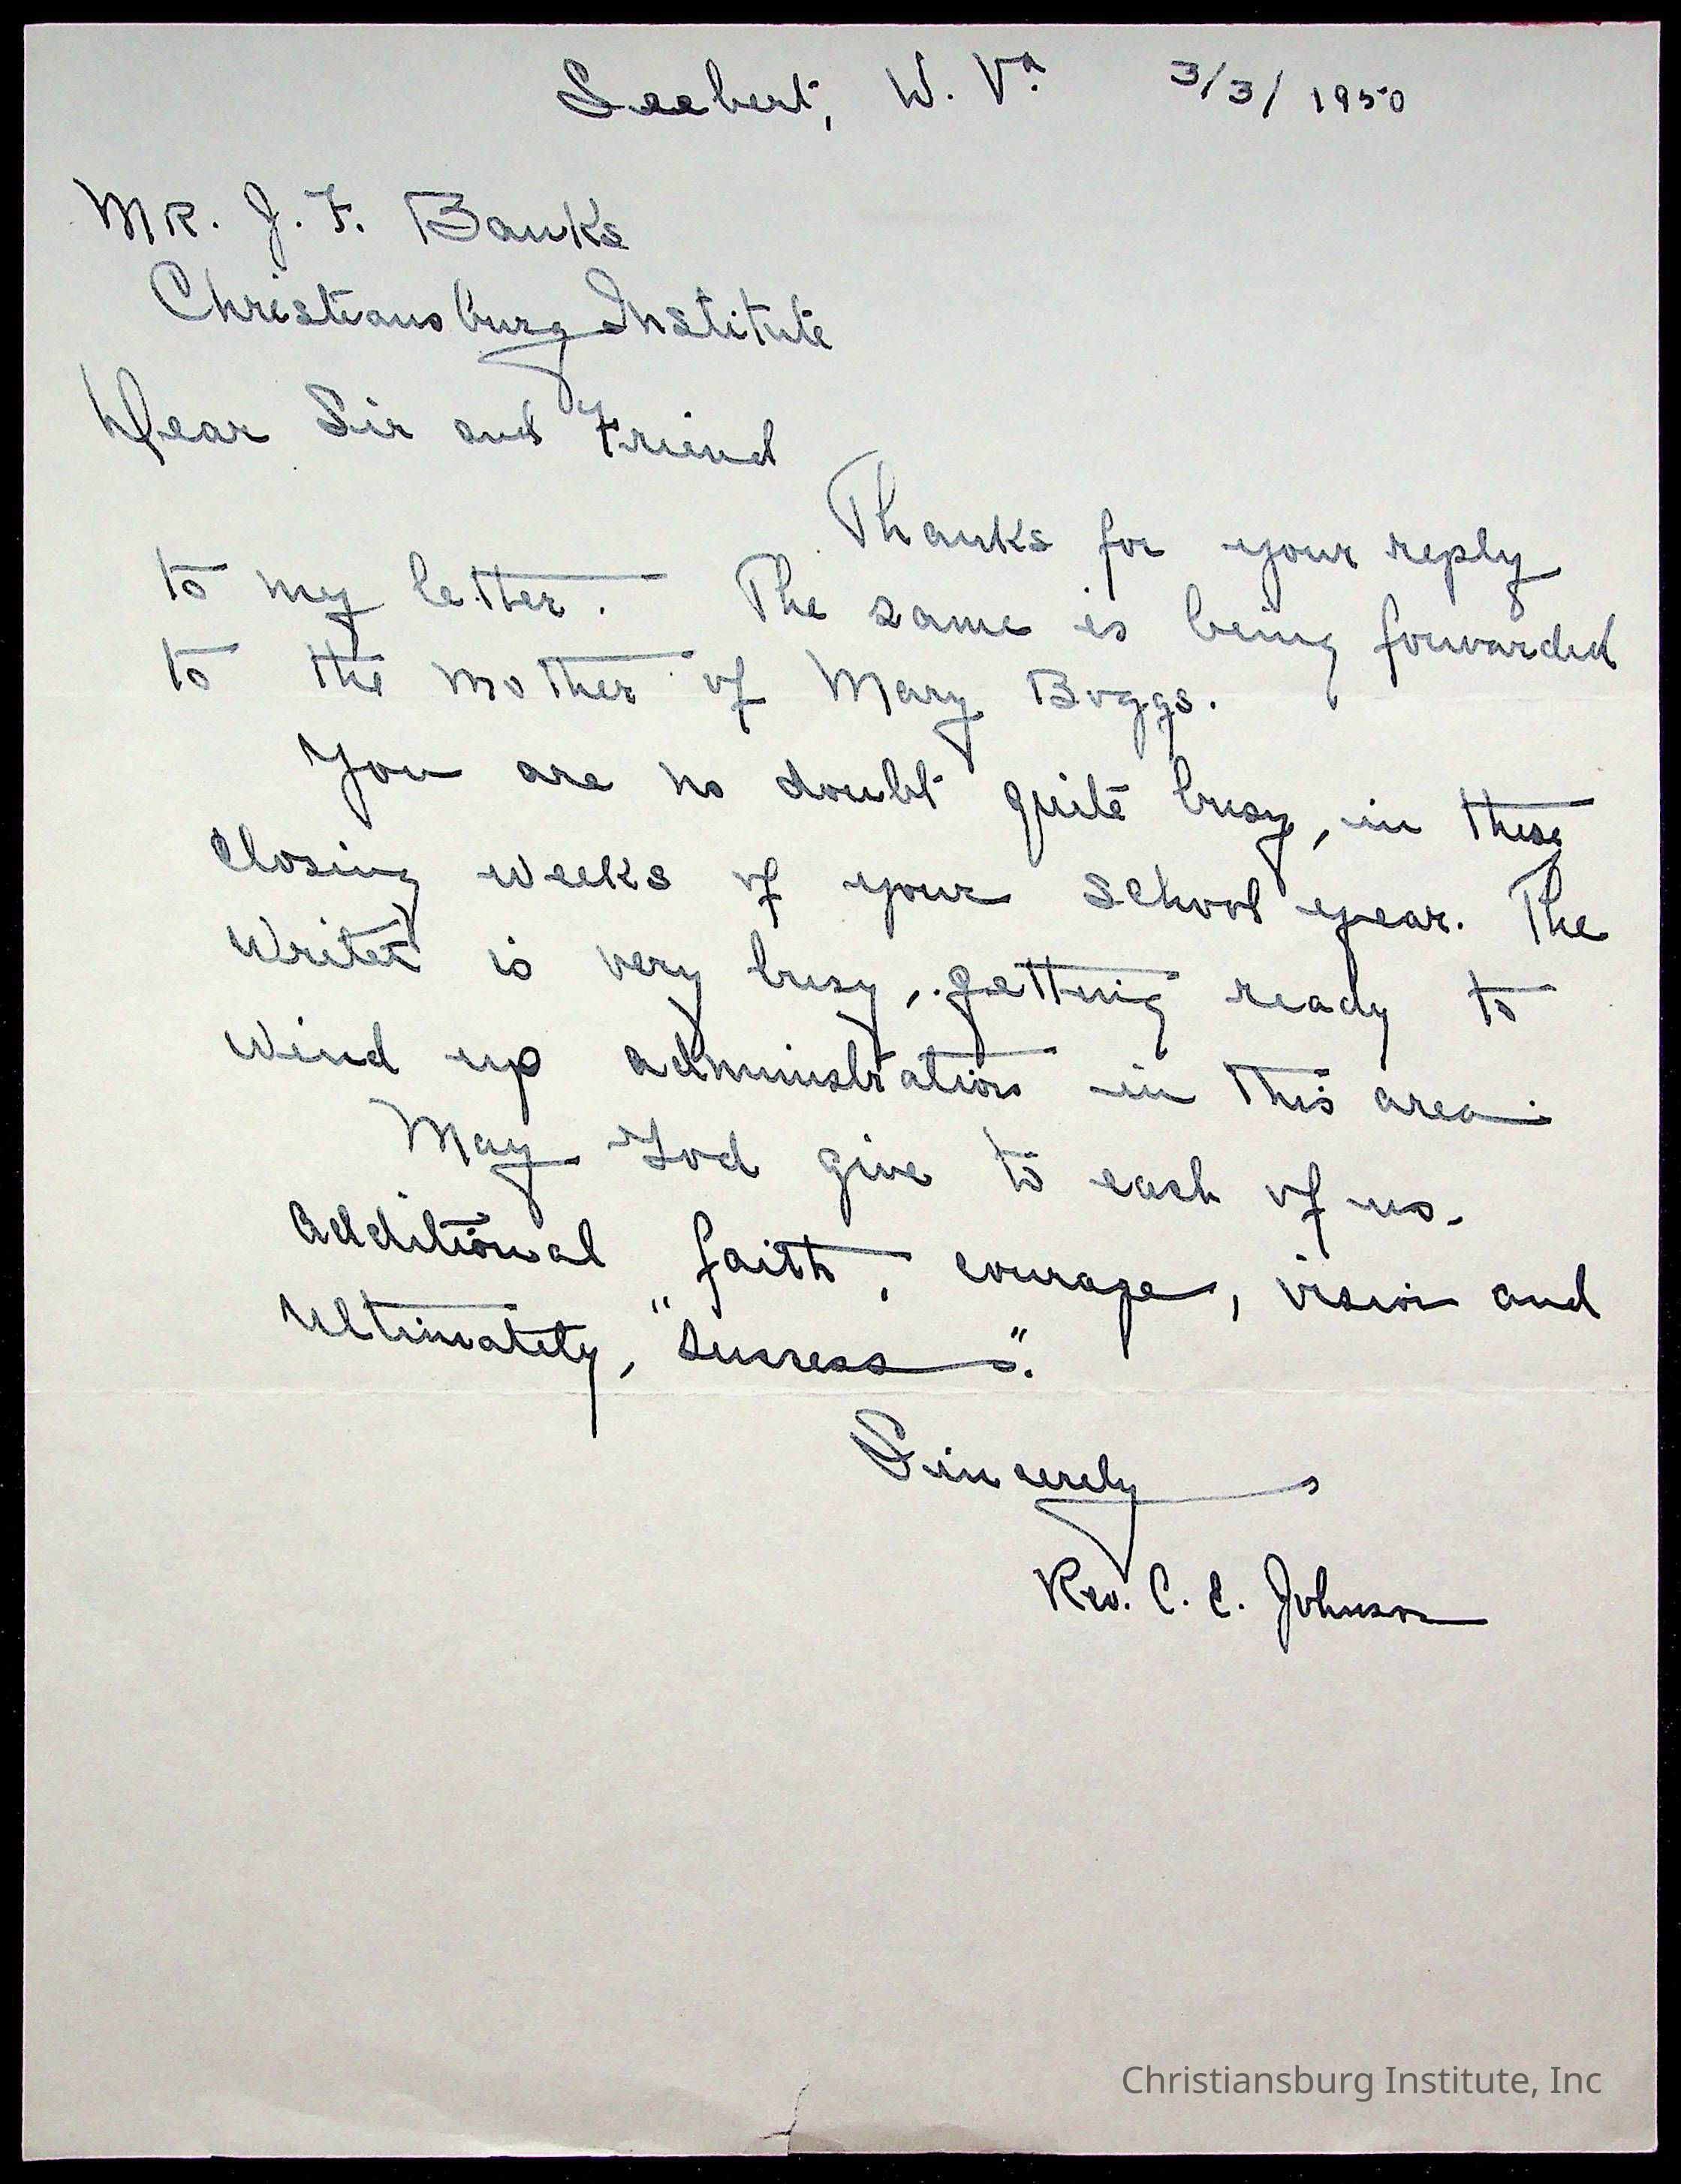 Seebert, W. Va. 3/3/1950
MR. J. F. Banks
Christiansburg Institute
Dear Sir and Friend
Thanks for your reply
to my letter. The same is being forwarded
to the mother of Mary Boggs.
You are no doubt quite busy, in these
closing weeks of your school year. The
writer is very busy, getting ready to
wind up administration in this area.
May God give to each of us.
additional faith, courage, vision and
ultimately, "success".
Sincerely
Rev. C. E. Johnson
Christiansburg Institute, Inc